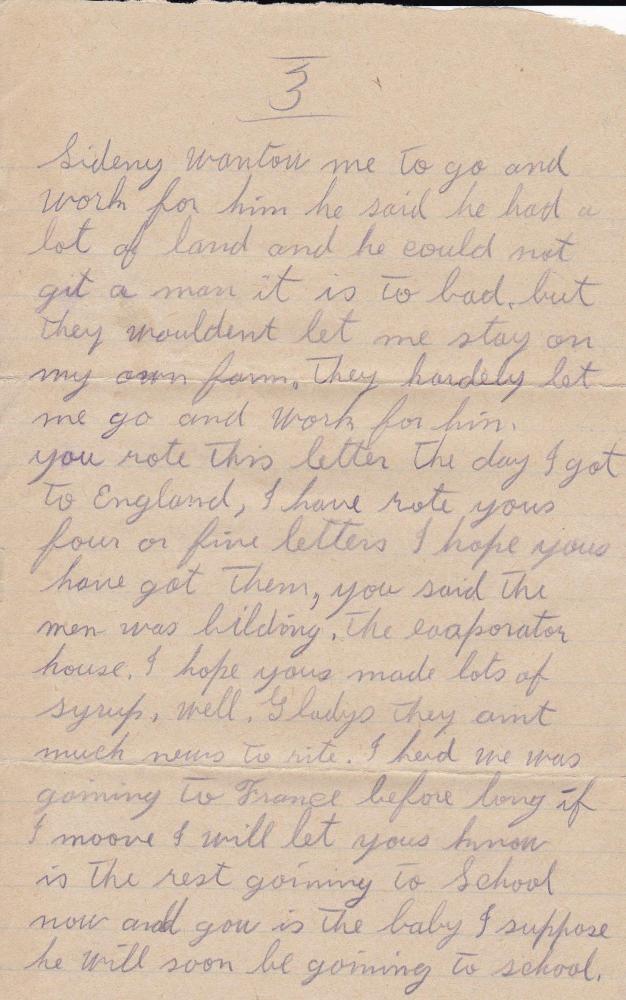 3
Sideny wantou me to go and
work for him he said he had a
lot of land and he could not
git a man it is to bad, but
they wouldent let me stay on
my own farm, they hardely let
me go and work for him.
you rote this letter the day I got
to England, I have rote yous
four or five letters I hope yous
have got them, you said the
men was bilding, the eaaporator
house. I hope yous made lots of
syrup, well, Gladys they aint
much news to rite. I herd we was
goining to France before long if
I moove I will let yous know
is the rest goining to School
now and gow is the baby I suppose
he will soon be goining to school.